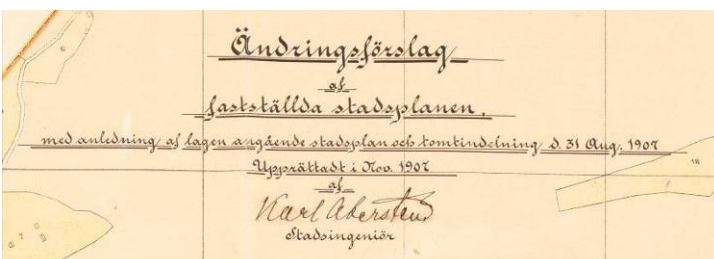 Ändringsförslag
af
fastställda stadsplanen,
med anledning af lagen angående stadsplan och tomtindelning d. 31 Aug. 1907
Upprättadt i Nov. 1907
af
Karl Abersten
Stadsingeniör
18